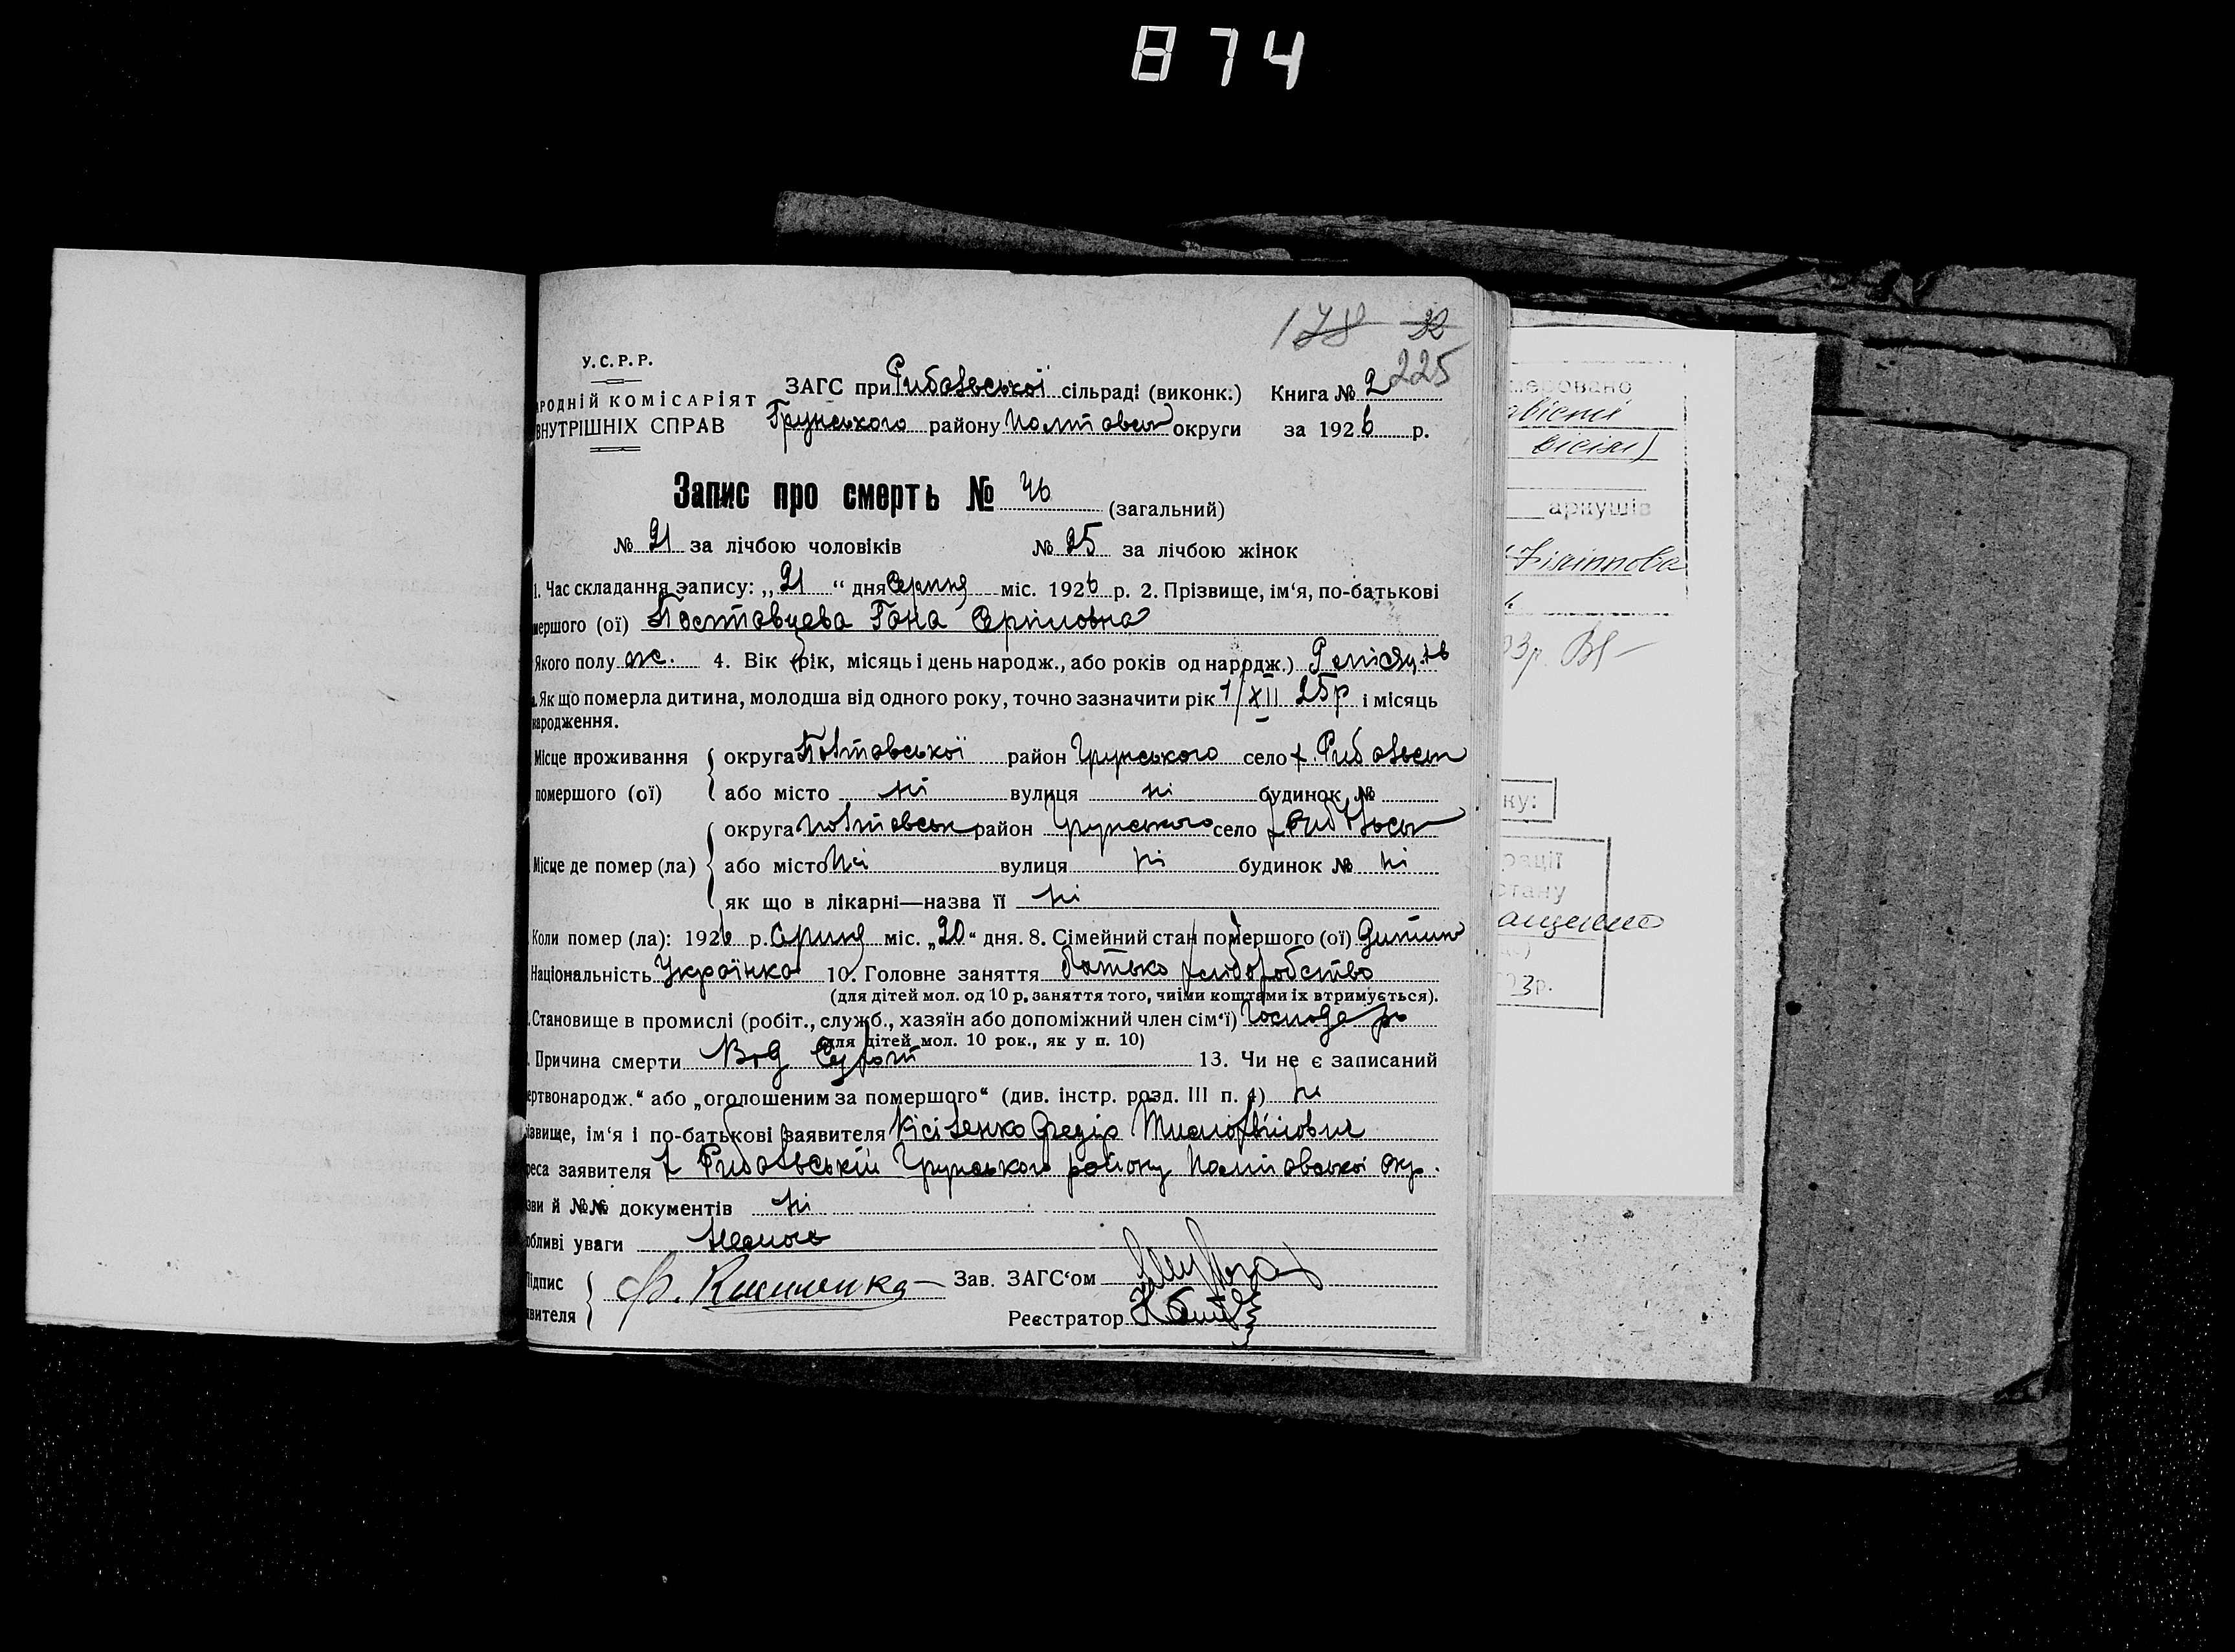 874
178 32
225
У.С.Р.Р.
ЗАГС при Рибальської сільраді (виконк.) Книга № 2
АРОДНІЙ КОМІСАРІЯТ
ВНУТРІШНІХ СПРАВ Грунського району Полтавськ округи за 1926 р.
Запис про смерть № 46 (загальний)
№ 21 за лічбою чоловіків № 25 за лічбою жінок
1. Час складання запису: „21“ дня Серпня міс. 1926 р. 2. Прізвище, ім‘я, по-батькові
мершого (ої) Гана
Якого полу ж. 4. Вік (рік, місяць і день народж., або років од народж.) 9 місяців
Як що померла дитина, молодша від одного року, точно зазначити рік 1/XII 25р і місяць
народження.
Місце проживання округа Полтавської район Грунського село х. Рибальськ
помершого (ої) або місто ні вулиця ні будинок №
округа Полтавськ район Грунського село х Рибальськ
Місце де помер (ла) або місто ні вулиця ні будинок № ні
як що в лікарні—назва її ні
Коли помер (ла): 1926 р. Серпня міс. „20“ дня. 8. Сімейний стан помершого (ої) дитина
Національність Українка 10. Головне заняття батько хліборобство
(для дітей мол. од 10 р. заняття того, чиїми коштами їх втримується).
Становище в промислі (робіт., служб., хазяїн або допоміжний член сім‘ї) Господар
(для дітей мол. 10 рок., як у п. 10)
Причина смерти Від 13. Чи не є записаний
ертвонародж.“ або „оголошеним за помершого“ (див. інстр. розд. III п. 4) ні
ізвище, ім‘я і по-батькові заявителя Кісіленко Федір
реса заявителя х Рибальській Грунського району Полтавської окр.
зви й №№ документів ні
обливі уваги
ідпис Зав. ЗАГС‘ом
Ф. Кисиленко
явителя Реєстратор
меровано
аркушів
ку:
рації
стану
3р.